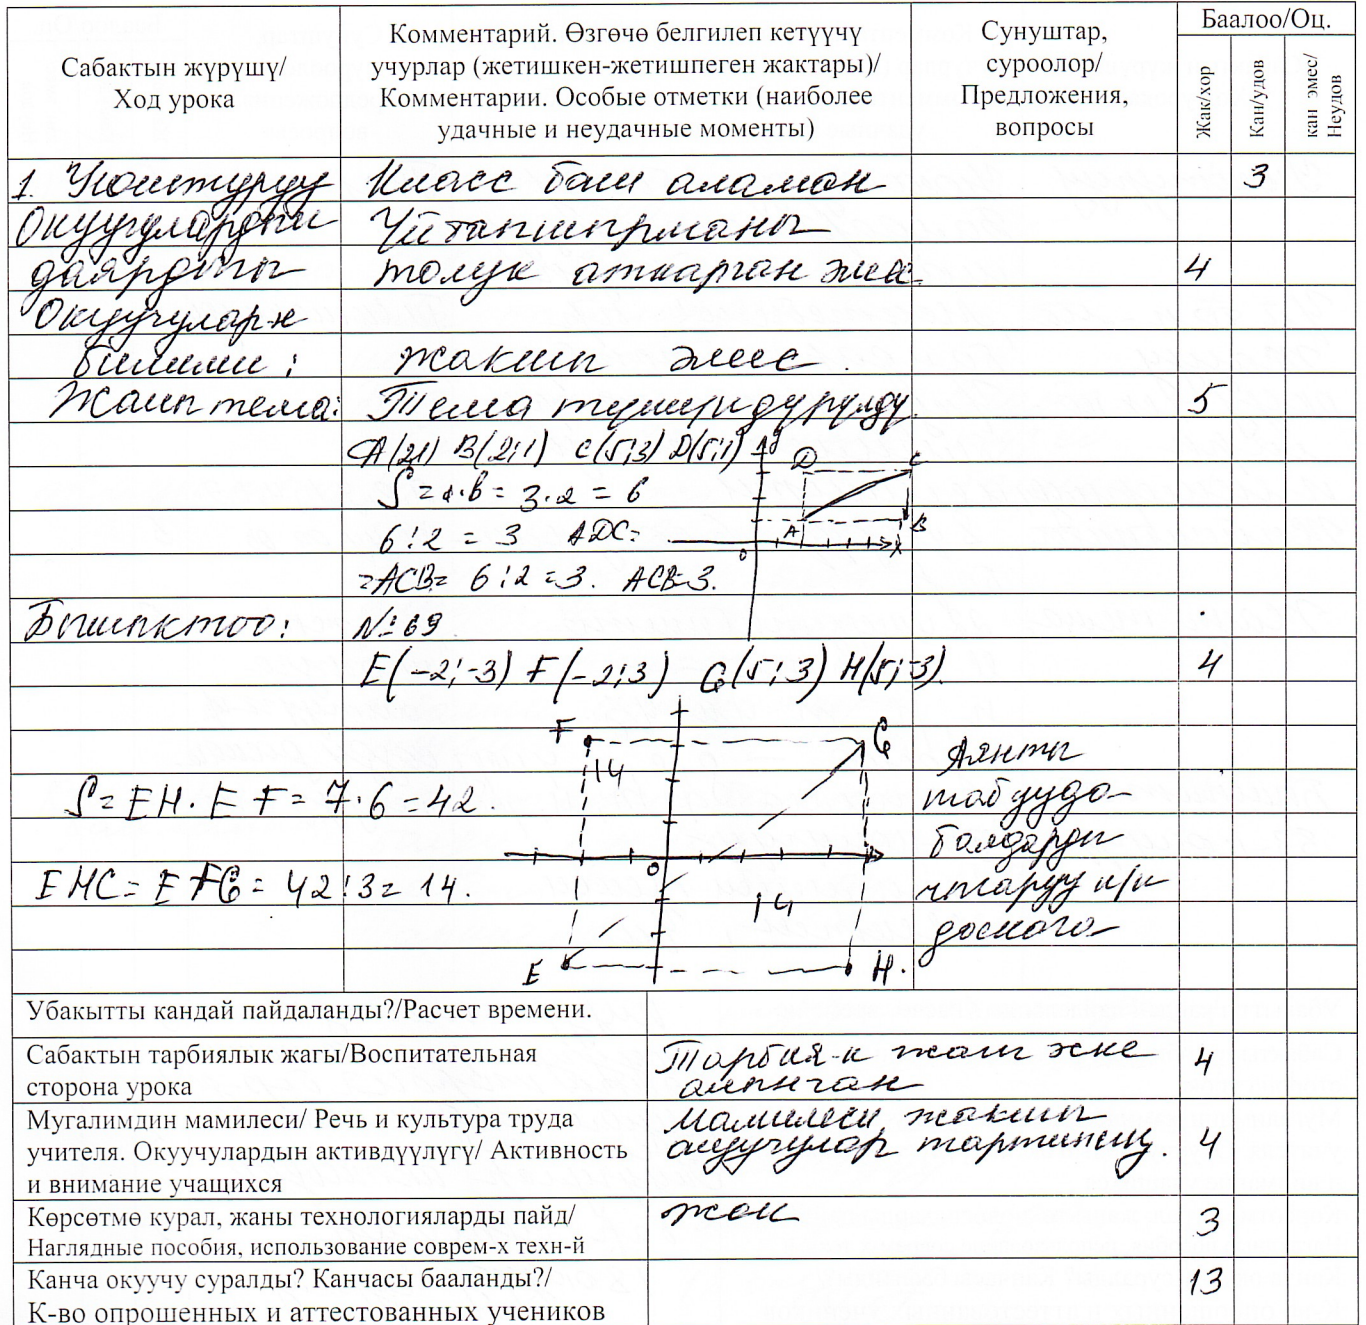 Сабактын жүрүшү/
Ход урока
Комментарий. Өзгөчө белгилеп кетүүчү
учурлар (жетишкен-жетишпеген жактары)/
Комментарии. Особые отметки (наиболее
удачные и неудачные моменты)
Сунуштар,
суроолор/
Предложения,
вопросы
Баалоо/Оц.
Жак/хор
Кан/удов
кан эмес/
Неудов
1. Уюштуруу Класс баш аламан 3
Окуучулардын Үй тапшырманы
даярдыгы толук аткарган эмес. 4
Окуучулар-н
билими: жакшы эмес.
Жаңы тема: Тема түшүндүрүлдү. 5
A(21) B(2;1) C(5;3) D(5;1)
y
D C
S=a·b=3·2=6
A B
6:2=3 ADC=
0 x
=ACB= 6:2=3. ACB=3.
Бышыктоо: №69
E(-2;-3) F(-2;3) G(5;3) H(5;-3). 4
F G
Аянты
14
S=EH·EF=7·6=42.
табууда
балдарды
0
EHC=EFG=42:3=14.
чыгаруу к/к
14
доскага
E H.
Убакытты кандай пайдаланды?/Расчет времени.
Сабактын тарбиялык жагы/Воспитательная
сторона урока
Тарбия-к жагы эске
алынган
4
Мугалимдин мамилеси/ Речь и культура труда
учителя. Окуучулардын активдүүлүгү/ Активность
и внимание учащихся
Мамилеси жакшы
окуучулар тартиптүү.
4
Көрсөтмө курал, жаны технологияларды пайд/
Наглядные пособия, использование соврем-х техн-й
жок
3
Канча окуучу суралды? Канчасы бааланды?/
К-во опрошенных и аттестованных учеников
13